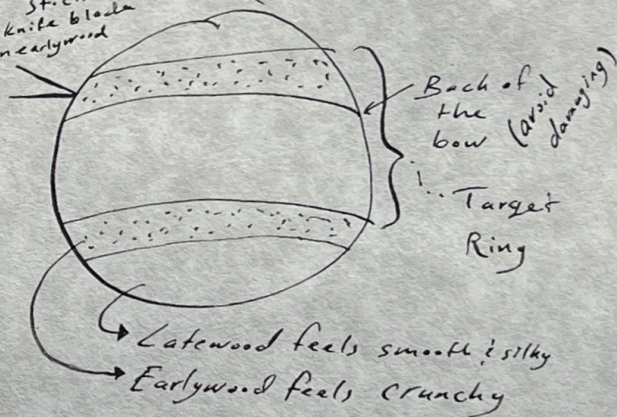 knife blade
in earlywood
Back of
the
bow
(avoid
damaging)
Target
Ring
Latewood feels smooth & silky
Earlywood feels crunchy